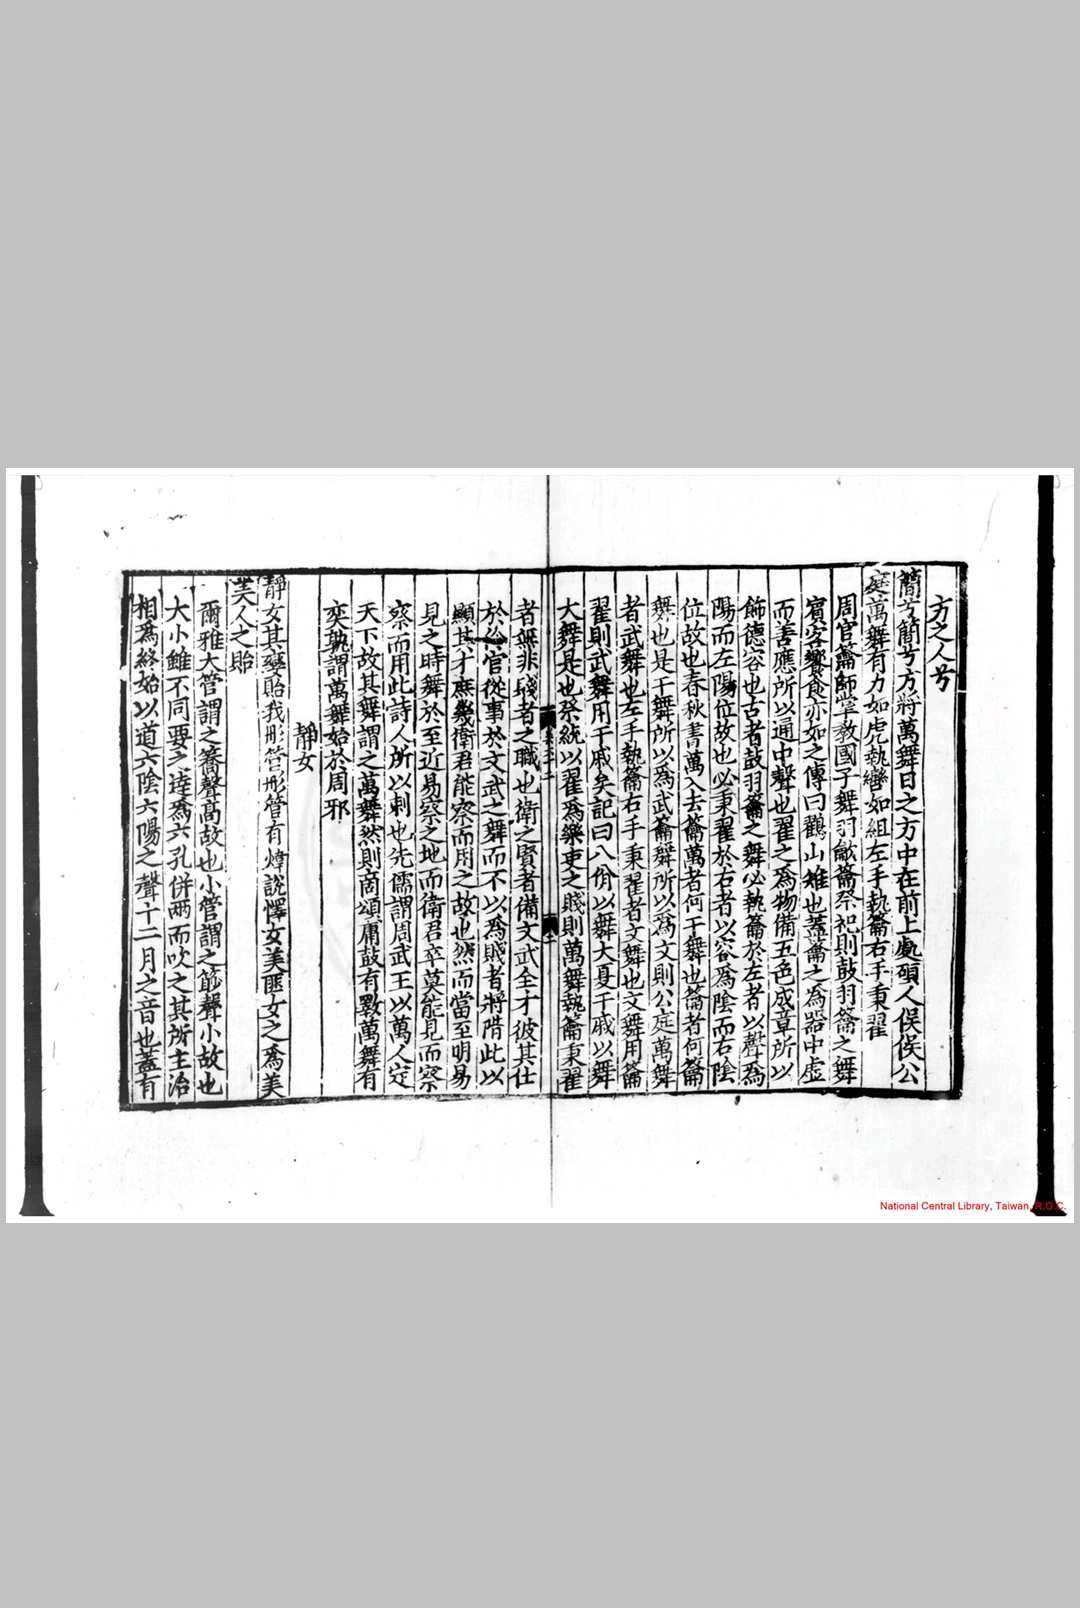 方之人兮
簡兮簡兮方將萬舞日之方中在前上處碩人俁俁公
庭萬舞有力如虎執轡如組左手執籥右手秉翟
周官籥師掌教國子舞羽龡籥祭祀則鼓羽籥之舞
賓客饗食亦如之傳曰鸐山雉也蓋籥之為器中虛
而善應所以通中聲也翟之為物備五色成章所以
飾德容也古者鼓羽籥之舞必執籥於左者以聲為
陽而左陽位故也必秉翟於右者以容為陰而右陰
位故也春秋書萬入去籥萬者何干舞也籥者何籥
舞也是干舞所以為武籥舞所以為文則公庭萬舞
者武舞也左手執籥右手秉翟者文舞也文舞用籥
翟則武舞用干戚矣記曰八佾以舞大夏干戚以舞
大舞是也祭統以翟為樂吏之賤則萬舞執籥秉翟
者無非賤者之職也衛之賢者備文武全才彼其仕
於伶官從事於文武之舞而不以為賤者將階此以
顯其才庶幾衛君能察而用之故也然而當至明易
見之時舞於至近易察之地而衛君卒莫能見而察
察而用此詩人所以刺也先儒謂周武王以萬人定
天下故其舞謂之萬舞然則商頌庸鼓有斁萬舞有
奕孰謂萬舞始於周邪
靜女
靜女其孌貽我彤管彤管有煒說懌女美匪女之為美
美人之貽
爾雅大管謂之簥聲高故也小管謂之篎聲小故也
大小雖不同要之逹為六孔併兩而吹之其所主治
相為終始以道六陰六陽之聲十二月之音也蓋有
National Central Library, Taiwan, R.O.C.